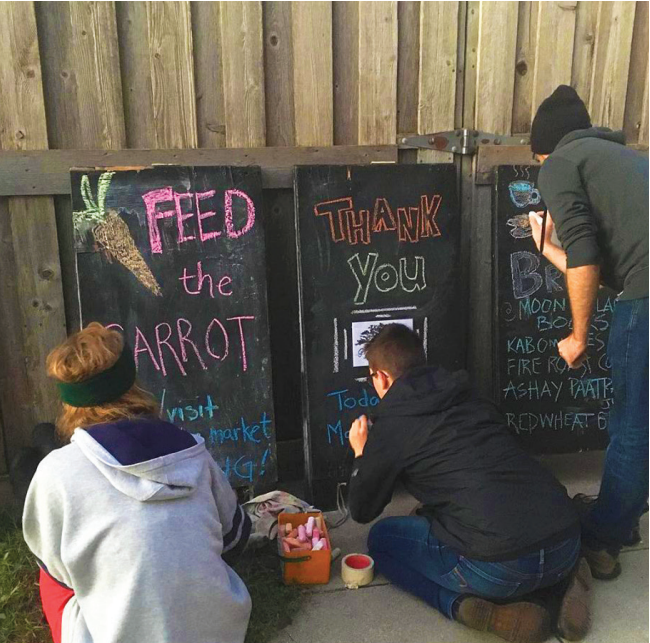 FEED
the
CARROT
visit
market
G!
THANK
You
Toda
M
BR
MOON
BOO
KABOM
FIRE RO
ASHAY
REDWHEAT B